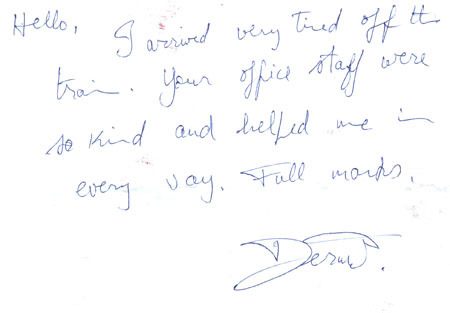 Hello, I arrived very tired off th
train. Your office staff were
so kind and helped me in
every way. Full marks.